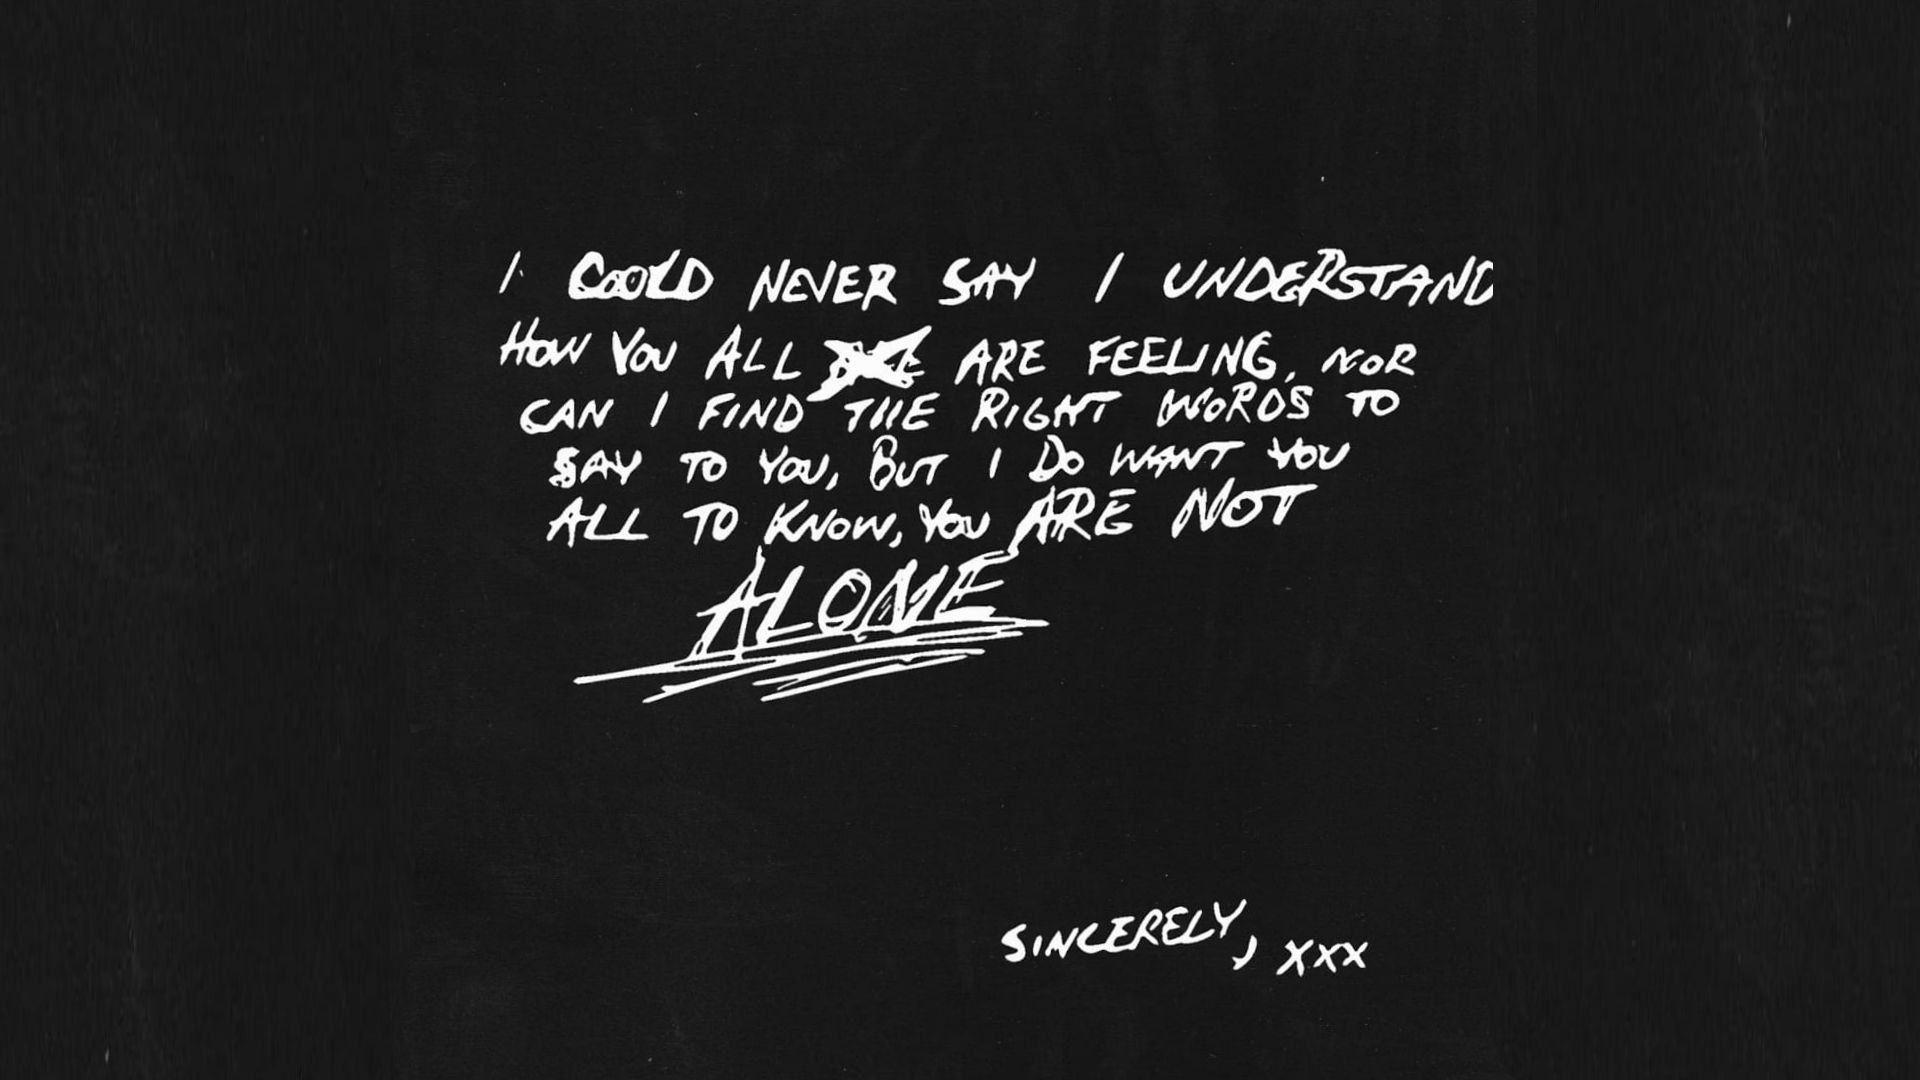 I COULD NEVER SAY I UNDERSTAND
HOW YOU ALL ARE FEELING, NOR
CAN I FIND THE RIGHT WORDS TO
SAY TO YOU, BUT I DO WANT YOU
ALL TO KNOW, YOU ARE NOT
ALONE
SINCERELY, XXX